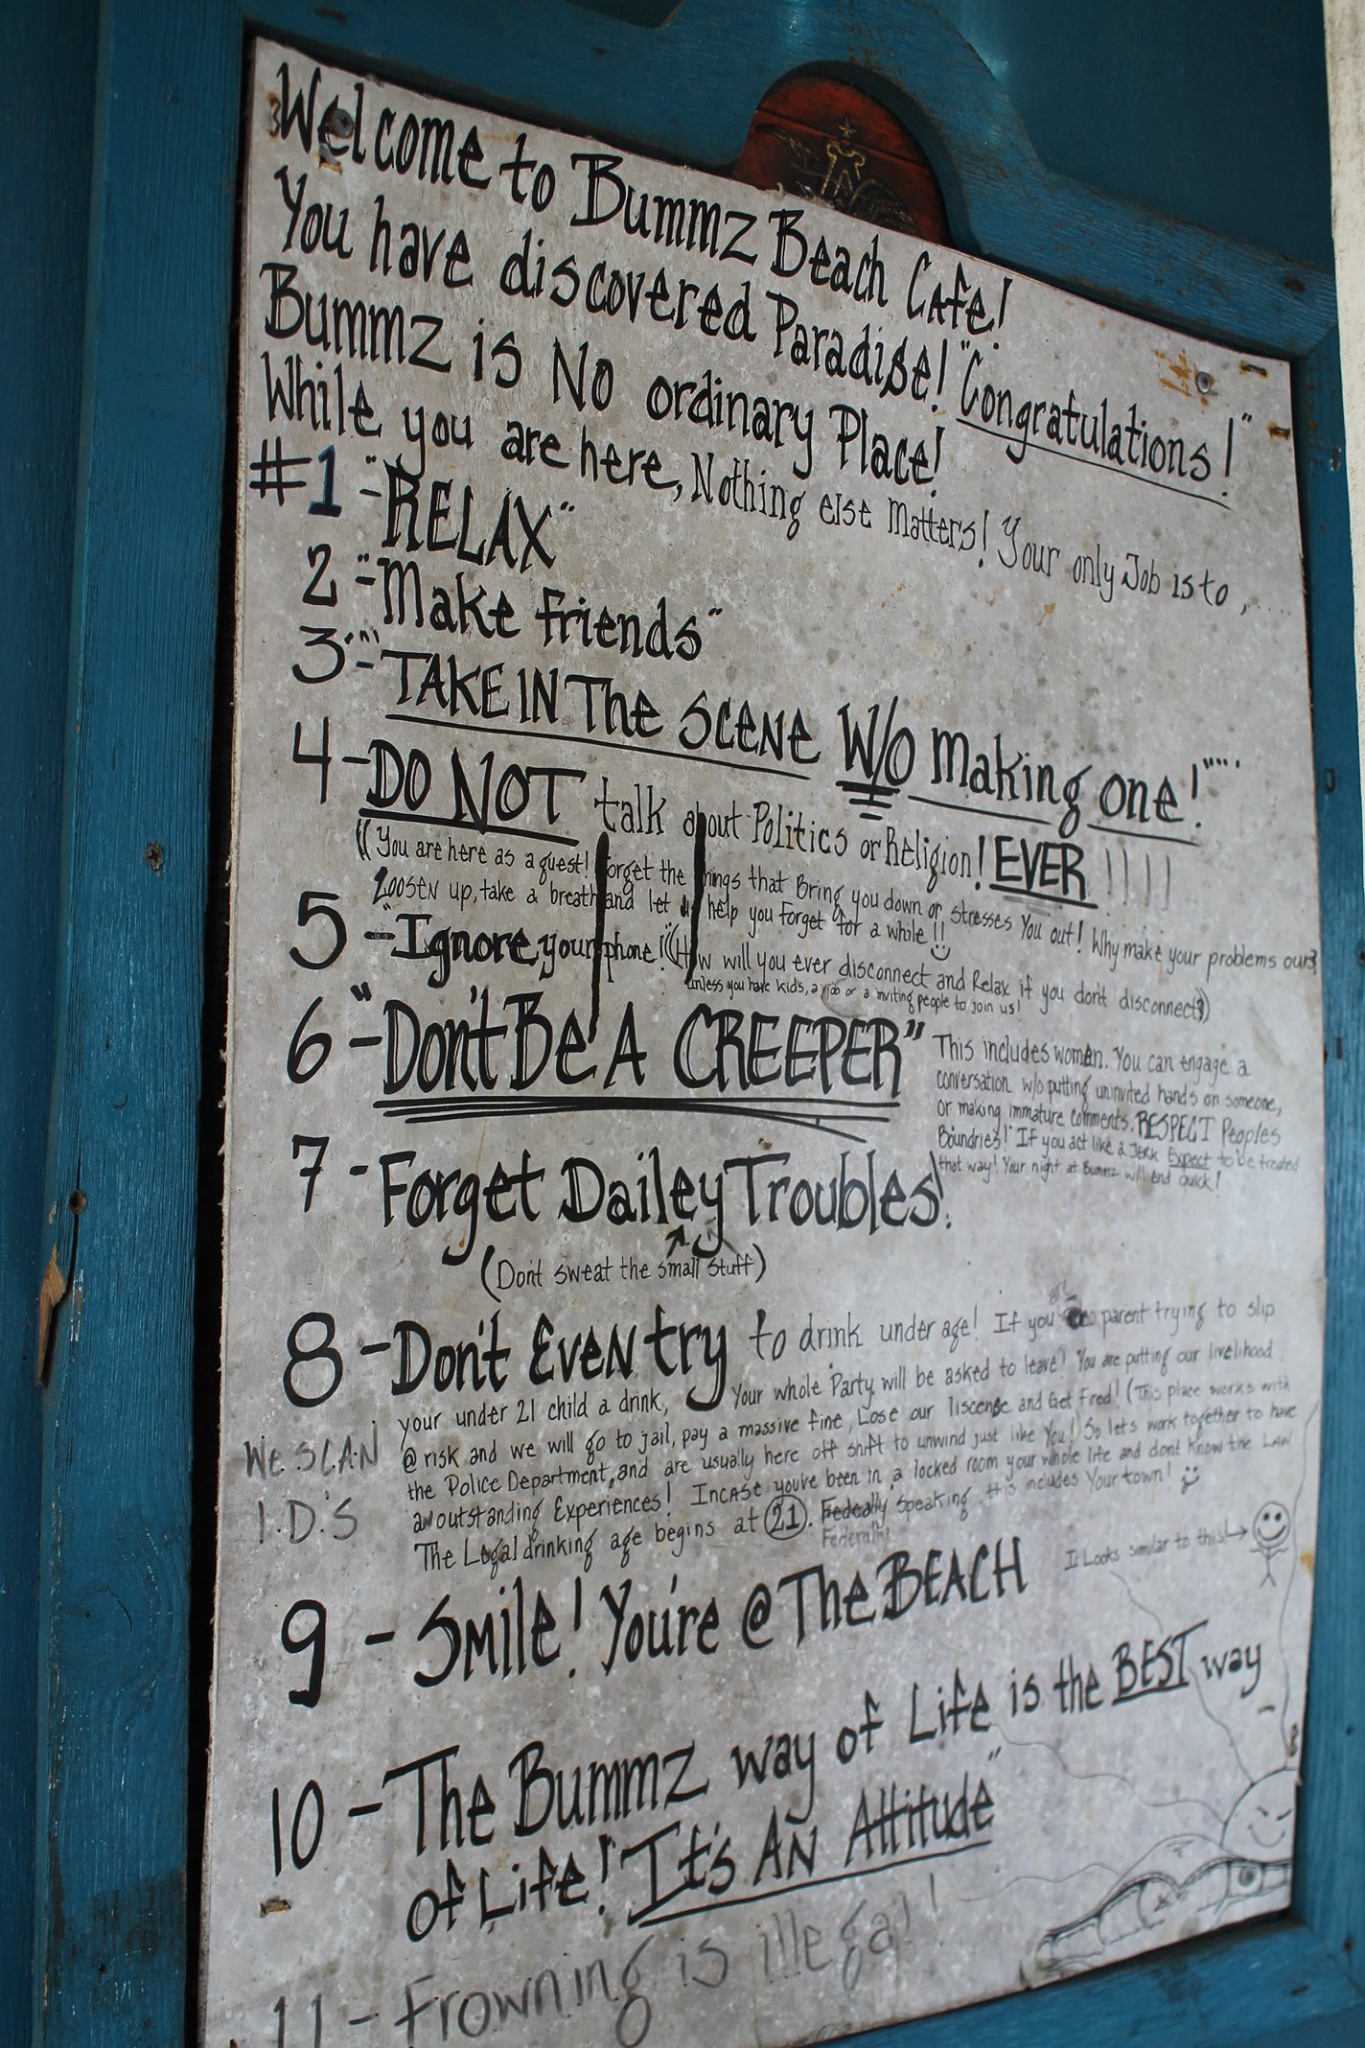 Welcome to Bummz Beach Cafe!
You have discovered Paradise! "Congratulations!"
Bummz is No ordinary Place!
While you are here, Nothing else Matters! Your only Job is to, .....
#1 - "RELAX"
2 - "Make friends"
3 - "TAKE IN The SCENE W/O Making one!"
4 - DO NOT talk about Politics or Religion! EVER!!!!
((You are here as a guest! Forget the things that Bring you down or stresses You out! Why make your problems ours?
Loosen up, take a breath and let us help you Forget for a while!!
5 - "Ignore your phone!" ((How will you ever disconnect and Relax if you don't disconnect?))
unless you have kids, a job or a inviting people to join us!
6 - "Don't Be A CREEPER"
This includes women. You can engage a
conversation w/o putting uninvited hands on someone,
or making immature comments. RESPECT Peoples
Boundries! If you act like a Jerk Expect to be treated
that way! Your night at Bummz will end quick!
7 - Forget Dailey Troubles!
(Don't sweat the small stuff)
8 - Don't Even try to drink under age! If you parent trying to slip
your under 21 child a drink, Your whole Party will be asked to leave! You are putting our livelihood
@ risk and we will go to jail, pay a massive fine, Lose our liscense and Get Fired! (This place works with
the Police Department, and are usually here off shift to unwind just like You! So lets work together to have
an outstanding Experiences! Incase youve been in a locked room your whole life and dont know the Law
The Legal drinking age begins at 21. Fedeally speaking this includes Your town!
Federally
We SCAN
I.D.'S
It Looks similar to this! →
9 - Smile! You're @ The BEACH
10 - The Bummz way of Life is the BEST way
of Life! "It's AN Attitude"
11 - Frowning is illegal!